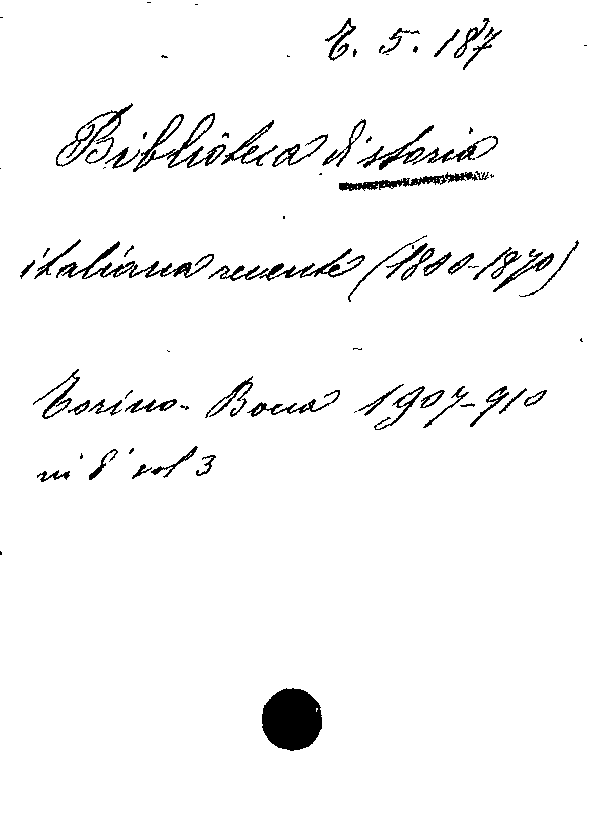 T. 5. 187
Biblioteca di storia
italiana recente (1800-1870)
Torino- Bocca 1907-910
in 8° vol 3